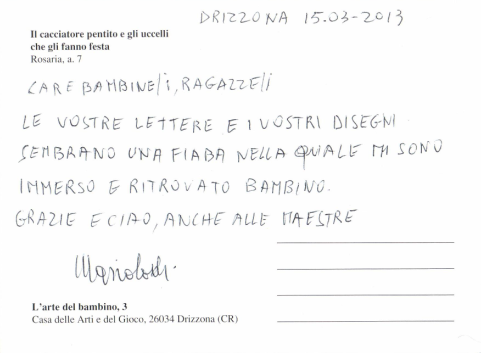 DRIZZONA 15.03-2013
Il cacciatore pentito e gli uccelli
che gli fanno festa
Rosaria, a. 7
CARE BAMBINE/I, RAGAZZE/I
LE VOSTRE LETTERE E I VOSTRI DISEGNI
SEMBRANO UNA FIABA NELLA QUALE MI SONO
IMMERSO E RITROVATO BAMBINO.
GRAZIE E CIAO, ANCHE ALLE MAESTRE
L'arte del bambino, 3
Casa delle Arti e del Gioco, 26034 Drizzona (CR)